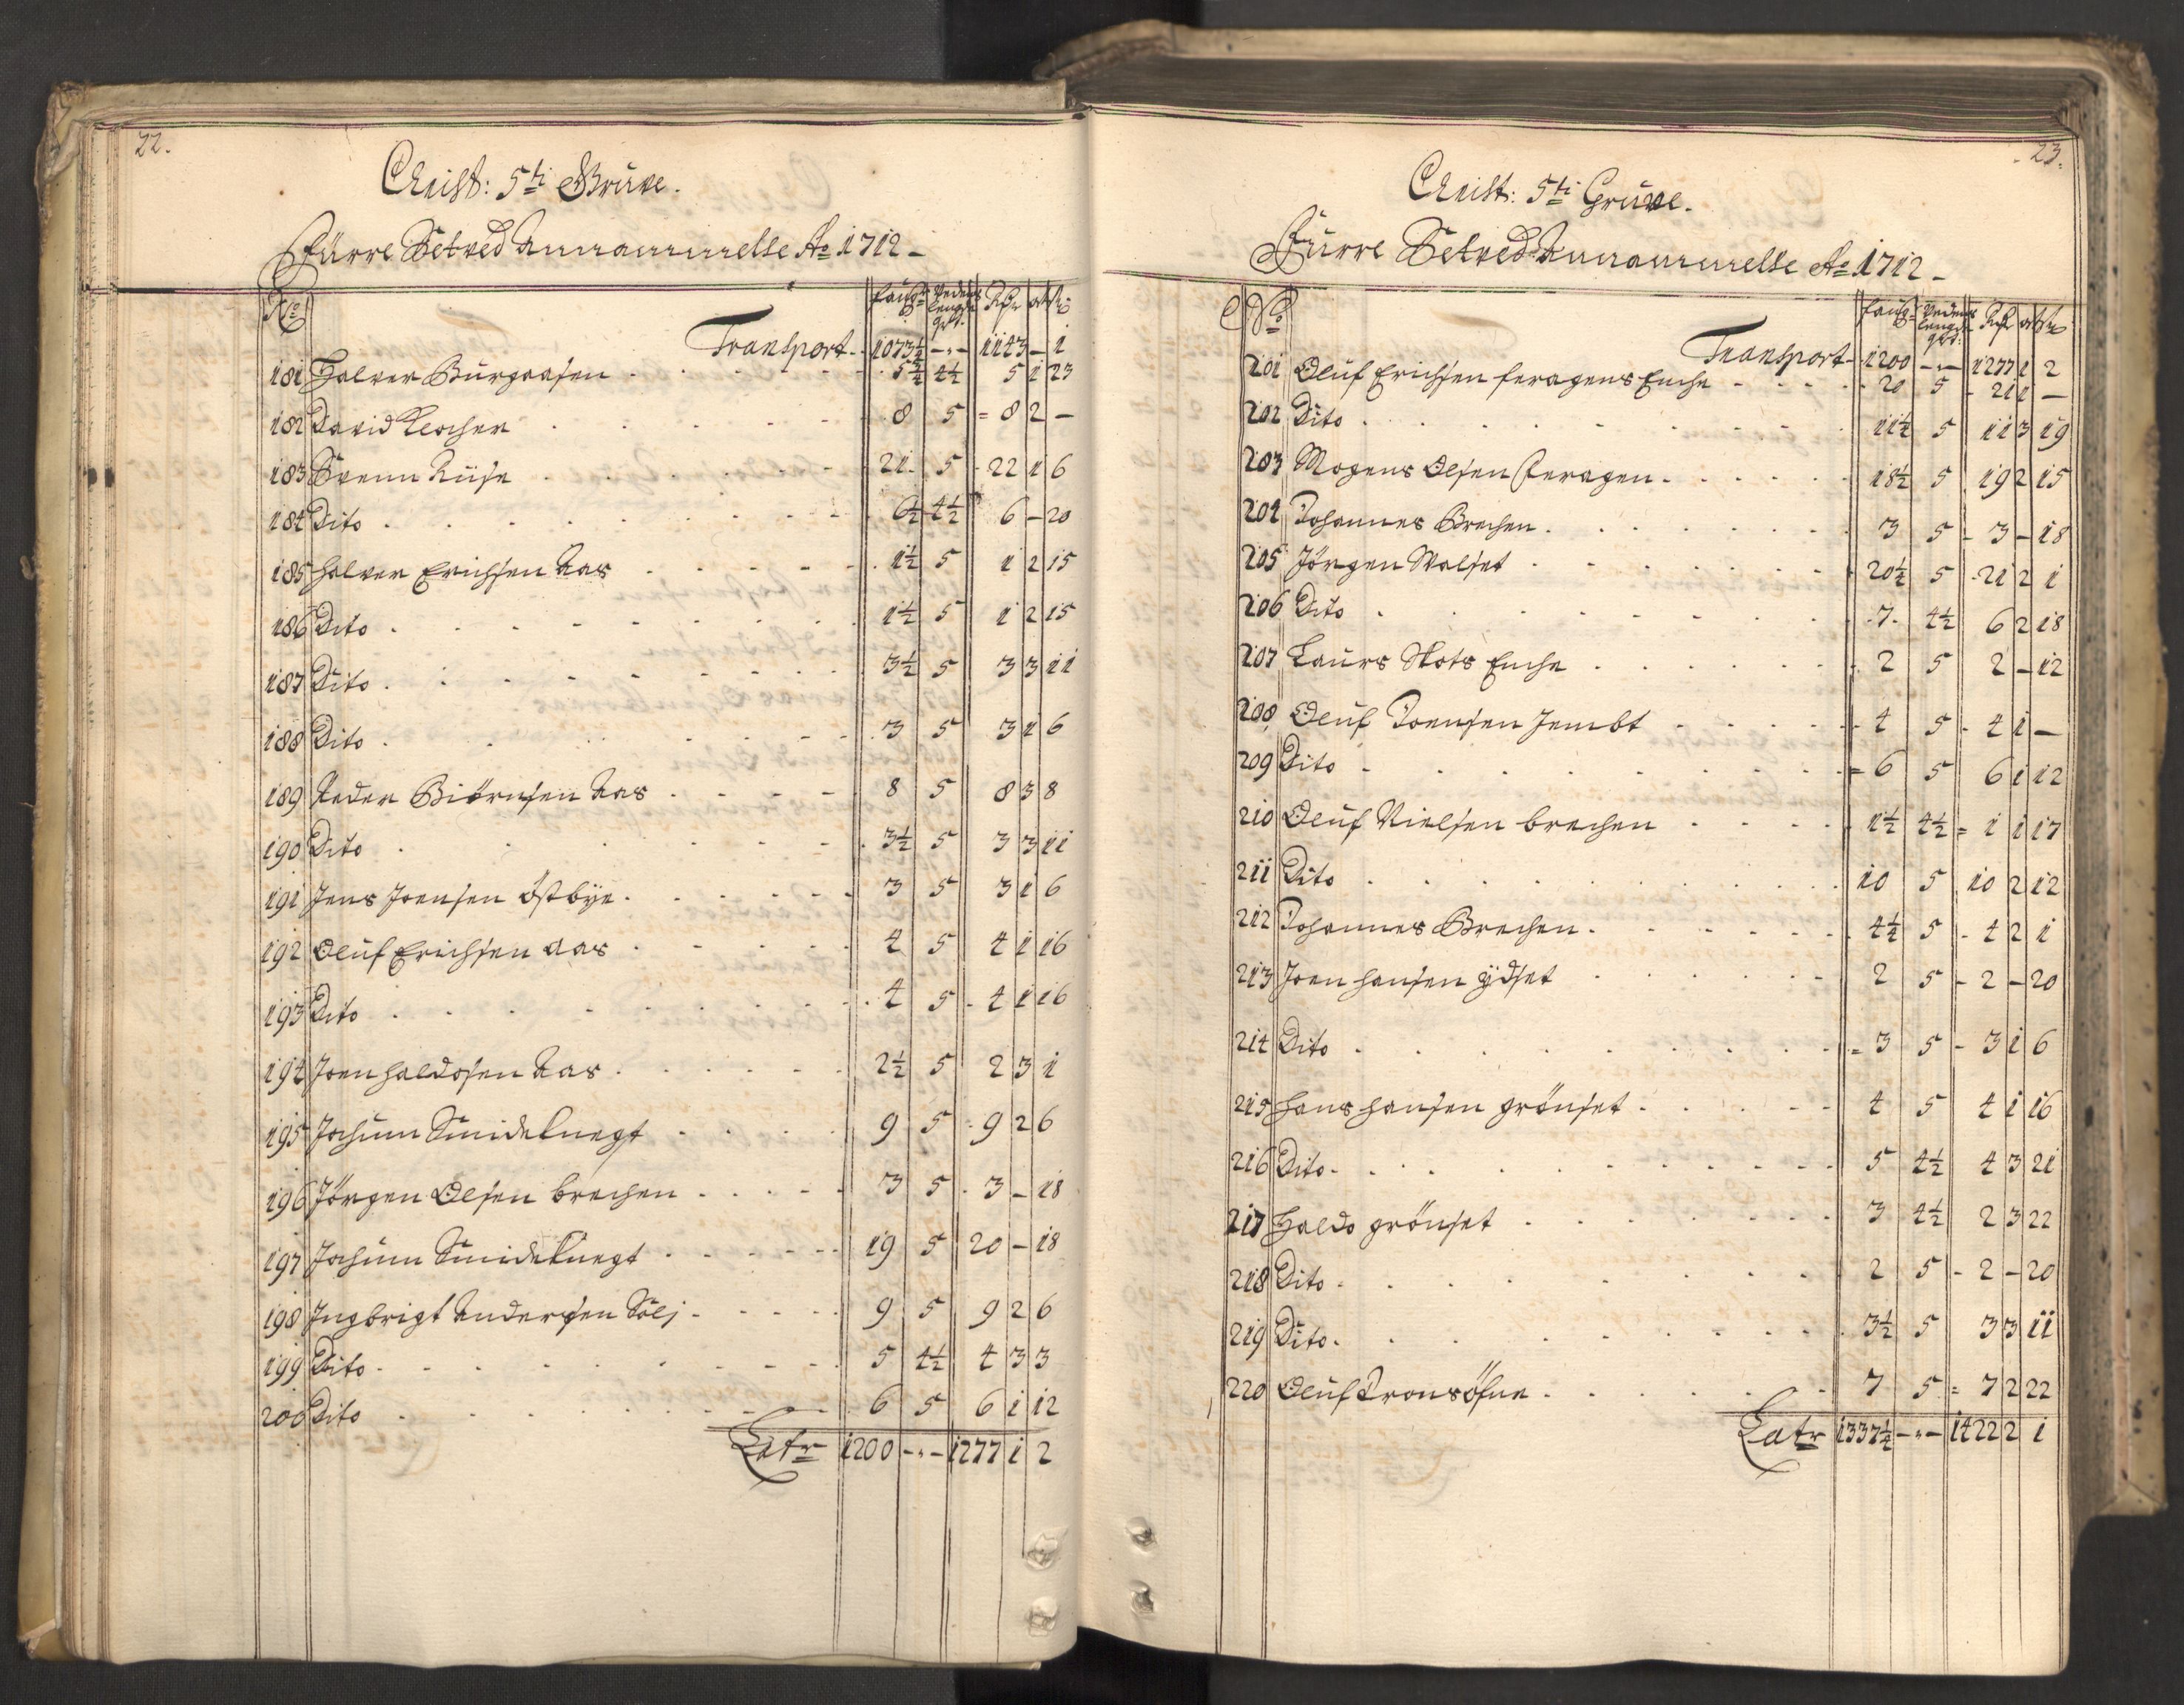 22.
Christ: 5ti Gruve.
Fürre Setved Annammelse Ao 1712 –
No Faufn Vedens lengde qrt. Rdr ort ß
Transport – 1073½ – „ – 1143 – 1
181 Halver Burgaasen 5½ 4½ 5 1 23
182 David Klocher 8 5 8 2 –
183 Svenn Ruse 21 5 22 1 6
184 Dito 6½ 4½ 6 – 20
185 Halver Erichsen Aas 1½ 5 1 2 15
186 Dito 1½ 5 1 2 15
187 Dito 3½ 5 3 3 11
188 Dito 3 5 3 1 6
189 Peder Biörnsen Aas 8 5 8 3 8
190 Dito 3½ 5 3 3 11
191 Jens Joensen Östbye 3 5 3 1 6
192 Oluf Erichsen Aas 4 5 4 1 16
193 Dito 4 5 4 1 16
194 Joen Haldosen Aas 2½ 5 2 3 1
195 Jochum Smideknegt 9 5 9 2 6
196 Jörgen Olsen brechen 3 5 3 – 18
197 Jochum Smideknegt 19 5 20 – 18
198 Ingbrigt Andersen Sölj 9 5 9 2 6
199 Dito 5 4½ 4 3 3
200 Dito 6 5 6 1 12
Latr 1200 – „ – 1277 1 2
23.
Christ: 5ti Gruve.
Fürre Setved Annammelse Ao 1712 –
No Faufn Vedens lengde qrt. Rdr ort ß
Transport – 1200 – „ – 1277 1 2
201 Oluf Erichsen feragens Enche 20 5 21 1 –
202 Dito 11¼ 5 11 3 19
203 Mogens Olsen feragen 18½ 5 19 2 15
204 Johannes Brechen 3 5 3 – 18
205 Jörgen Valset 20¼ 5 21 2 1
206 Dito 7 4½ 6 2 18
207 Laurs Skots Enche 2 5 2 – 12
208 Oluf Joensen Jembt 4 5 4 1 –
209 Dito 6 5 6 1 12
210 Oluf Nielsen brechen 1½ 4½ 1 1 17
211 Dito 10 5 10 2 12
212 Johannes Brechen 4¼ 5 4 2 1
213 Joen Hansen ÿdset 2 5 2 – 20
214 Dito 3 5 3 1 6
215 Hans Hansen grönset 4 5 4 1 16
216 Dito 5 4½ 4 3 21
217 Haldo grönset 3 4½ 2 3 22
218 Dito 2 5 2 – 20
219 Dito 3½ 5 3 3 11
220 Oluf Tronsöfne 7 5 7 2 22
Latr 1337¼ – „ – 1422 2 1